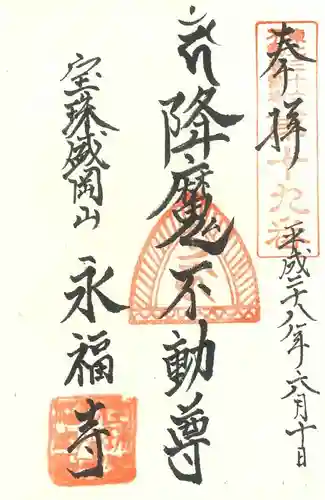 奉拝
平成二十八年六月十日
降魔不動尊
宝珠盛岡山
永福寺